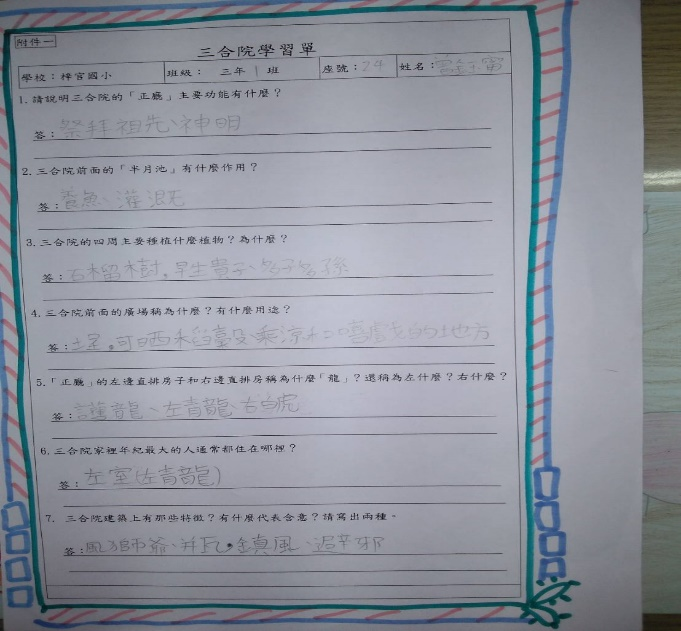 附件一
三合院學習單
學校：梓官國小 班級： 三年 1 班 座號：24 姓名：
1. 請說明三合院的「正廳」主要功能有什麼？
答：祭拜祖先、神明
2. 三合院前面的「半月池」有什麼作用？
答：養魚、灌溉
3. 三合院的四周主要種植什麼植物？為什麼？
答：石榴樹。早生貴子、多子多孫
4. 三合院前面的廣場稱為什麼？有什麼用途？
答：土埕。可日晒稻穀、乘涼和嘻戲的地方
5. 「正廳」的左邊直排房子和右邊直排房稱為什麼「龍」？還稱為左什麼？右什麼？
答：護龍、左青龍 右白虎
6. 三合院家裡年紀最大的人通常都住在哪裡？
答：左室(左青龍)
7. 三合院建築上有那些特徵？有什麼代表含意？請寫出兩種。
答：風獅爺、瓦。鎮風、避邪